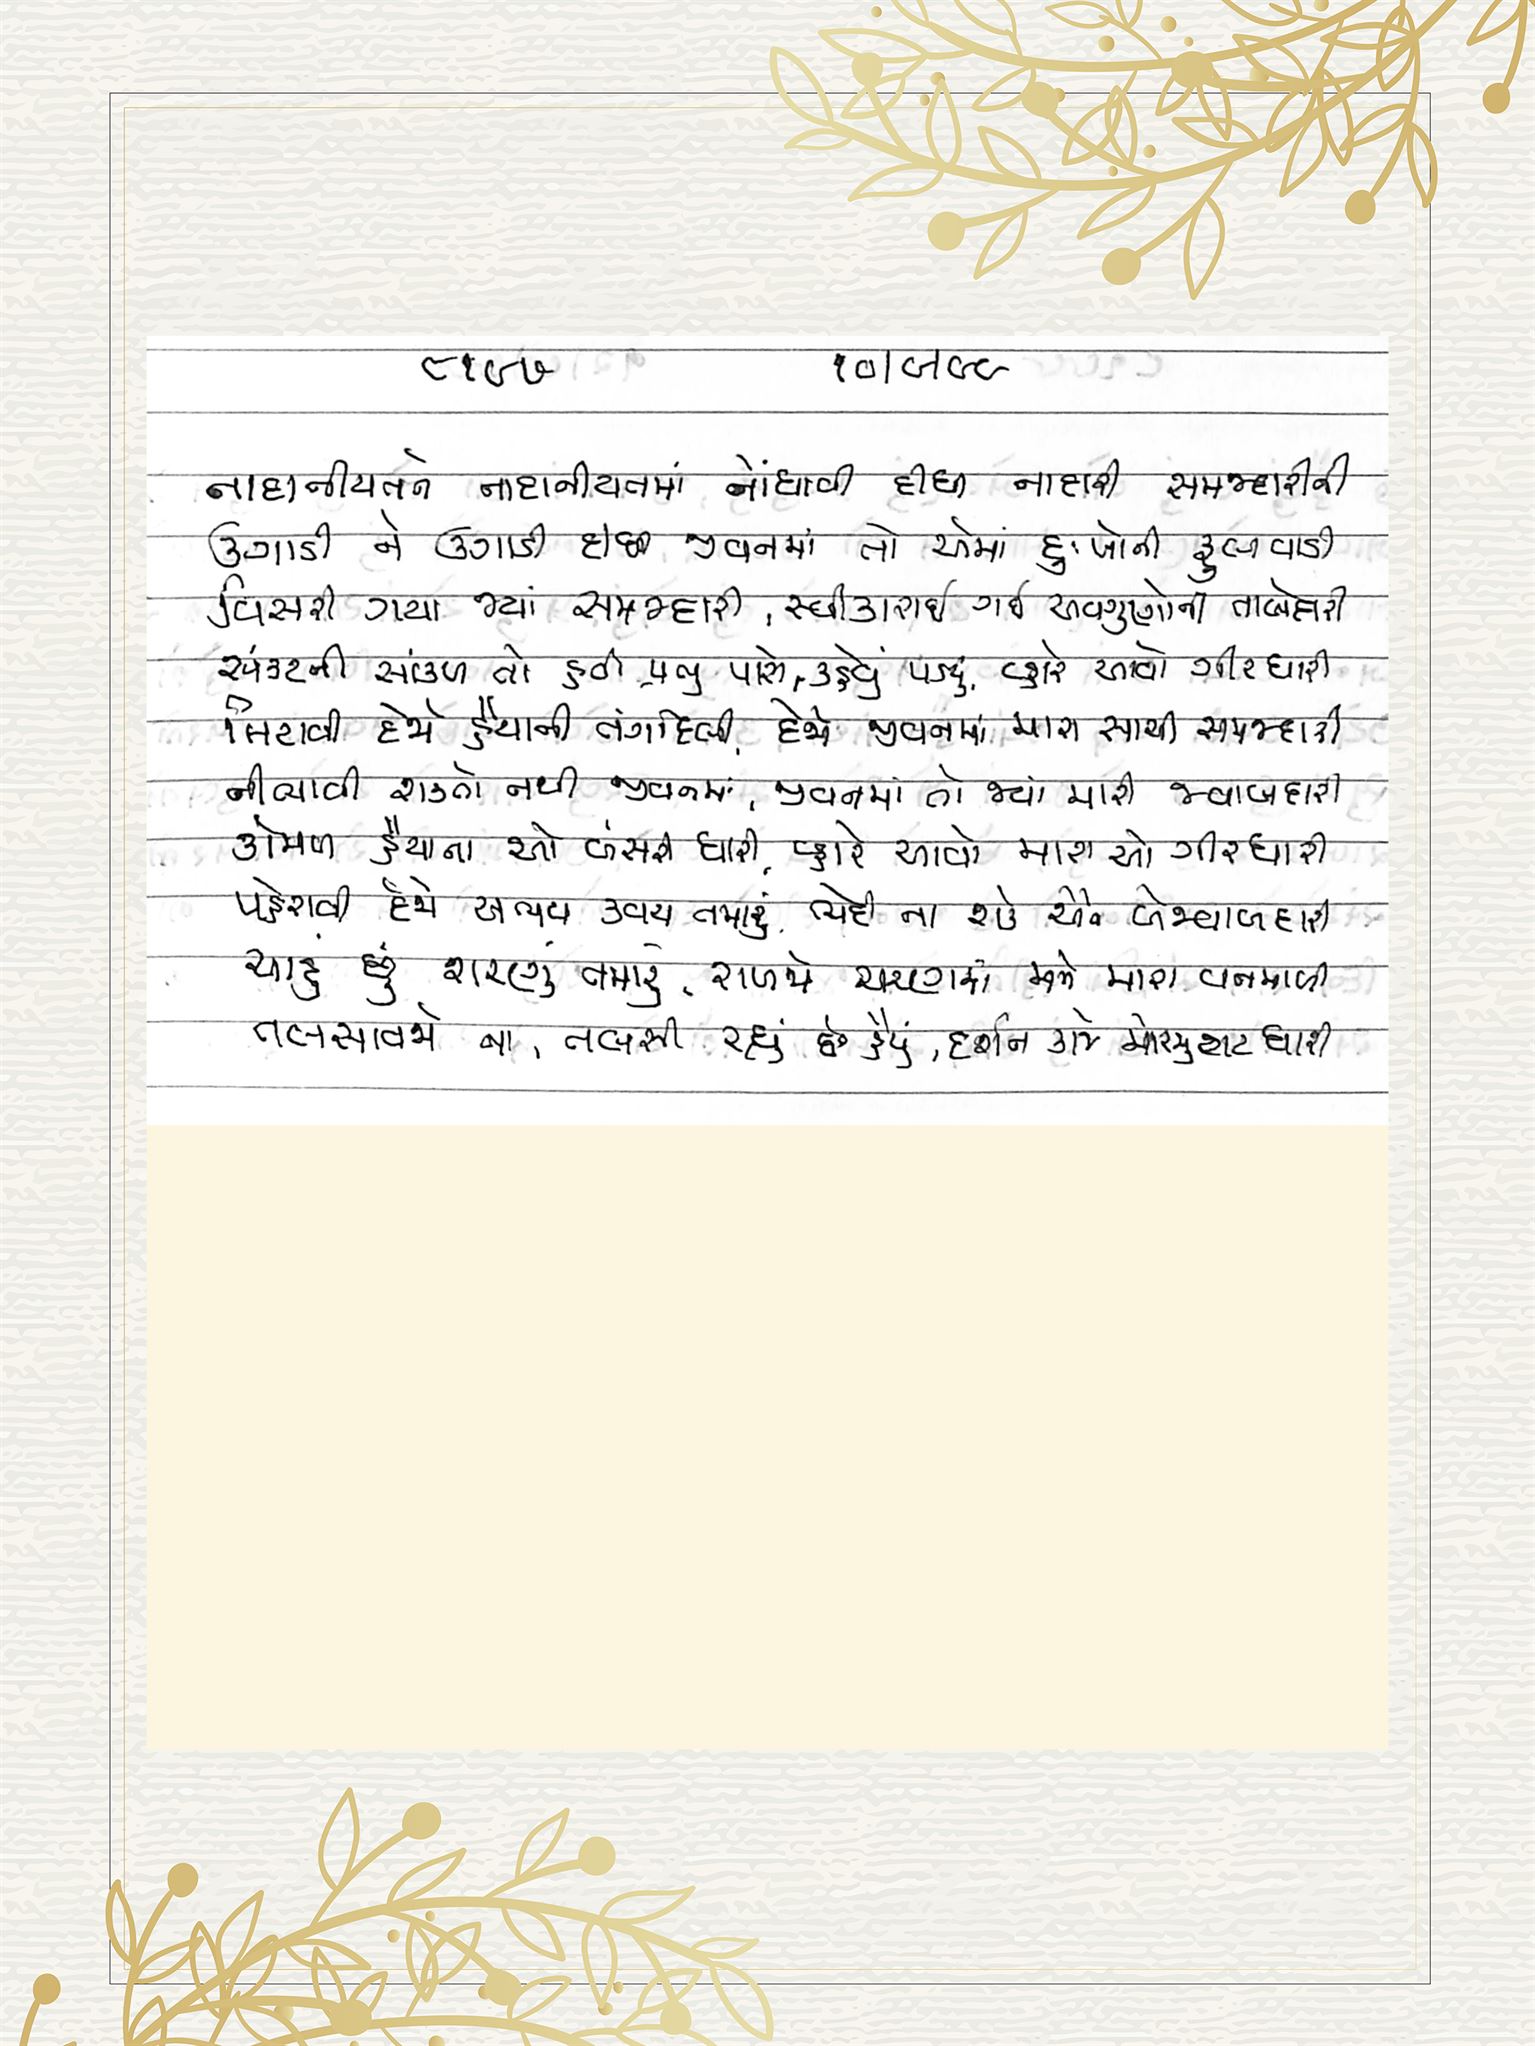 ૯૧૯૭ ૧૦/૯૯
નાદાનીયતને નાદાનીયતમાં નોંધાવી દીધી નાદારી સમજદારીની
ઉગાડી ને ઉગાડી દીધી જીવનમાં તો એમાં દુઃખોની ફુલવાડી
વિસરી ગયા જ્યાં સમજદારી, સ્વીકારાઈ ગઈ અવગુણોની તાબેદારી
સંકટની સાંકળ તો હતી પ્રભુ પાસે, કહેવું પડ્યું, વ્હારે આવો ગીરધારી
મિટાવી દેજે હૈયાની તંગદિલી, દેજે જીવનમાં મારા સાચી સમજદારી
નીભાવી શકતો નથી જીવનમાં, જીવનમાં તો જ્યાં મારી જવાબદારી
કોમળ હૈયાના ઓ બંસરી ધારી, વ્હારે આવો મારા ઓ ગીરધારી
પહેરાવી દેજે અભય કવચ તમારું, ભેદી ના શકે એને બેજવાબદારી
ચાહું છું શરણું તમારું, રાખજે ચરણમાં મને મારા વનમાળી
તલસાવજે ના, તલસી રહ્યું છે હૈયું, દર્શન કાજે મોરમુગટ ધારી